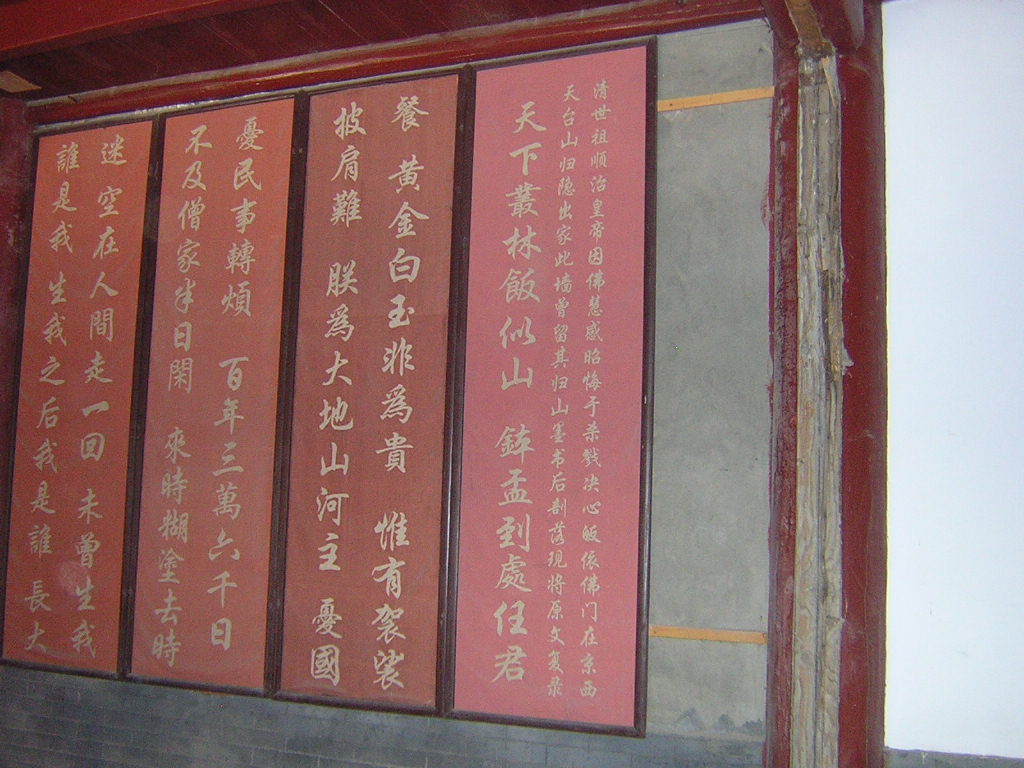 清世祖順治皇帝因佛慧感昭悔于杀戮决心皈依佛门在京西
天台山归隐出家此墙曾留其归山墨书后剖落现将原文复录
天下叢林飯似山 鉢盂到處任君
餐 黄金白玉非爲貴 惟有袈裟
披肩難 朕爲大地山河主 憂國
憂民事轉煩 百年三萬六千日
不及僧家半日閑 來時糊塗去時
迷 空在人間走一回 未曾生我
誰是我 生我之后我是誰 長大